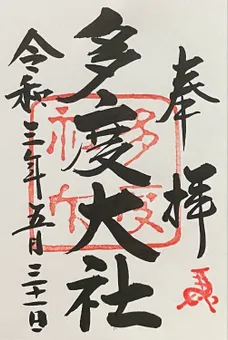 奉拝
多度大社
令和三年五月三十一日